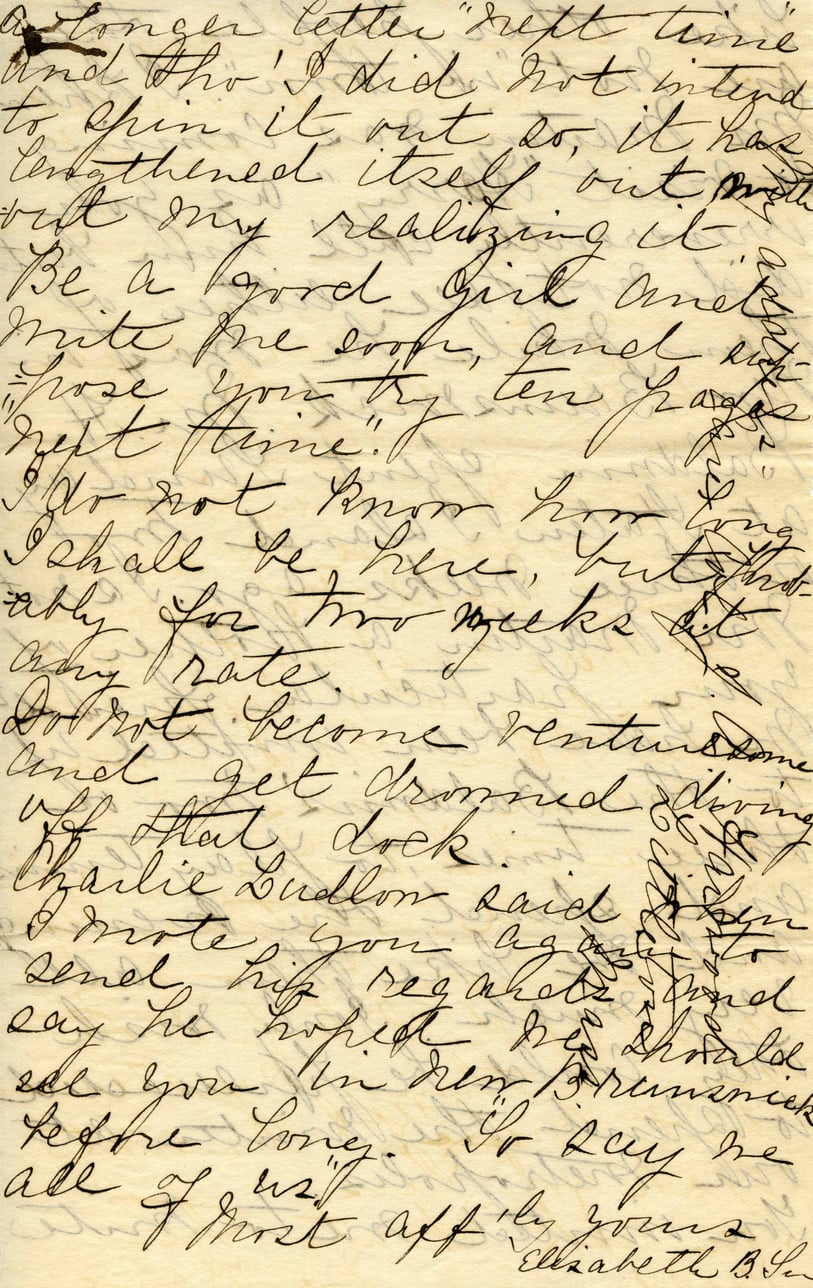 a longer letter "next time"
and tho' I did not intend
to spin it out so, it has
lengthened itself out with
=out my realizing it
Be a good girl and
write me soon, and sup-
=pose you try ten pages
"next time".
I do not know how long
I shall be here, but prob-
=ably for two weeks at
any rate.
Do not become venturesome
and get drowned diving
off that dock.
Charlie Ludlow said when
I wrote you again to
send his regards and
say he hoped we should
see you in New Brunswick
before long. "So say we
all of us."
Most aff'ly yours
Elisabeth B.
My address is